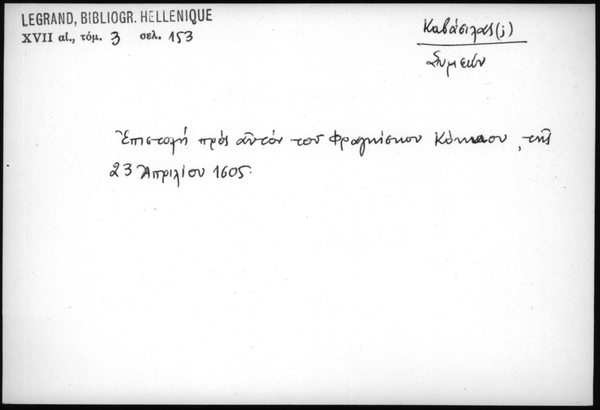 LEGRAND, BIBLIOGR. HELLENIQUE
XVII αἰ., τόμ. 3 σελ. 153
Καβάσιλας (;)
Συμεών
Ἐπιστολή πρός αὐτόν τοῦ Φραγκίσκου Κόκκου, τῆς
23 Ἀπριλίου 1605.